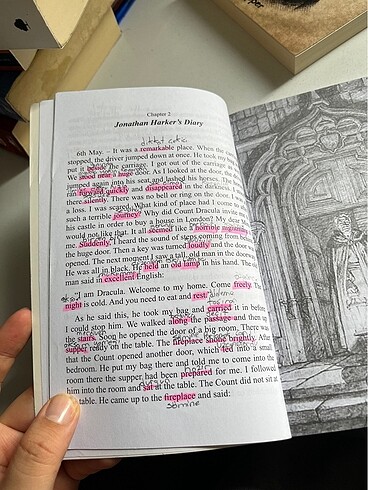 Chapter 2
Jonathan Harker's Diary
dikkat çekici
6th May. – It was a remarkable place. When the
stopped, the driver jumped down at once. He took my
put it before the carriage. I got out of the carriage
We stood near a huge door. As I looked at the door, the
jumped again into his seat and lashed his horses. The
ran forward quickly and disappeared in the darkness. I
there silently. There was no bell or ring on the door. I was
a loss. I was scared. What kind of place had I come to
such a terrible journey? Why did Count Dracula invite
his castle in order to buy a house in London? My dear
would not like that. It all seemed like a horrible nightmare
me. Suddenly I heard the sound of steps coming from behind
the huge door. Then a key was turned loudly and the door
opened. The next moment I saw a tall, old man in the doorway.
He was all in black. He held an old lamp in his hand. The
man said in excellent English:
"I am Dracula. Welcome to my home. Come freely. The
night is cold. And you need to eat and rest."
As he said this, he took my bag and carried it in before
I could stop him. We walked along the passage and then up
the stairs. Soon he opened the door of a big room. There was
supper ready on the table. The fireplace shone brightly. After
that the Count opened another door, which led into a small
bedroom. He put my bag there and told me to come into the
hazır
room there the supper had been prepared for me. I followed
him into the room and sat at the table. The Count did not sit at
the table. He came up to the fireplace and said:
şömine